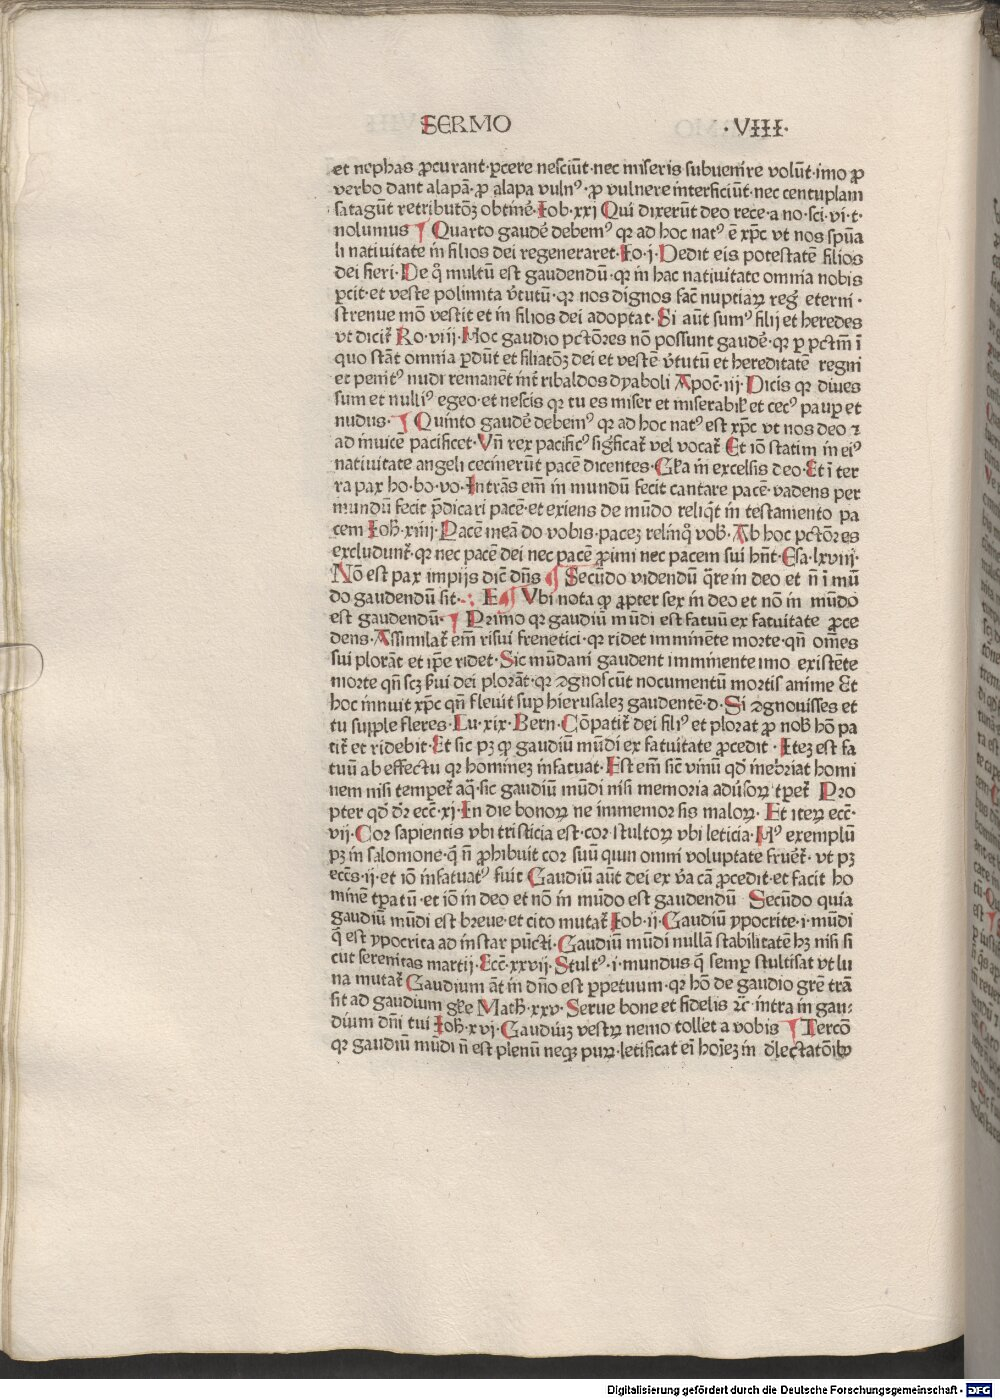 SERMO ·VIII·
et nephas ꝓcurant·ꝑcere nesciūt·nec miseris subuenire volūt·imo ꝓ
verbo dant alapā·ꝓ alapa vulnꝰ·ꝓ vulnere interficiūt·nec centuplam
satagūt retributōꝫ obtinē·Iob·xxi Qui dixerūt deo rece·a no·sci·vi·t·
nolumus ¶ Quarto gaudē debemꝰ qꝛ ad hoc natꝰ ē xp̄c vt nos spūa
li natiuitate in filios dei regeneraret·Io·i·Dedit eis potestatē filios
dei fieri·De q̄ multū est gaudendū·qꝛ in hac natiuitate omnia nobis
ꝑcit·et veste polimita v̄tutū·qꝛ nos dignos fac̄ nuptiaꝝ reḡ eterni·
strenue mō vestit et in filios dei adoptat·Si aūt sumꝰ filij et heredes
vt dicit᷑ Ro·viij·Hoc gaudio pctōres nō possunt gaudē·qꝛ ꝑ pctm̄ ī
quo stāt omnia ꝑdūt et filiatōꝫ dei et vestē v̄tutū et hereditatē regni
et penitꝰ nudi remanēt int̄ ribaldos dyaboli Apoc̄·iij·Dicis qꝛ diues
sum et nulliꝰ egeo·et nescis qꝛ tu es miser et miserabił et cecꝰ pauꝑ et
nudus·¶ Quinto gaudē debemꝰ qꝛ ad hoc natꝰ est xp̄c vt nos deo ⁊
ad inuicē pacificet·Vn̄ rex pacificꝰ significat᷑ vel vocat᷑ Et iō statim in eiꝰ
natiuitate angeli cecinerūt pacē dicentes·Gła in excelsis deo·Et ī ter
ra pax ho·bo·vo·Intrās em̄ in mundū fecit cantare pacē·vadens per
mundū fecit p̄dicari pacē·et exiens de mūdo reliqt in testamento pa
cem Ioh̄·xiiij·Pacē meā do vobis·pacez relinq̄ vob̄·Ab hoc pctōres
excludunt᷑·qꝛ nec pacē dei nec pacē ꝓximi nec pacem sui hn̄t·Esa·lxviij·
Nō est pax impijs dic̄ dn̄s ¶ Secūdo videndū q̄re in deo et n̄ ī mū
do gaudendū sit·: E ¶ Vbi nota ꝙ ꝓpter sex in deo et nō in mūdo
est gaudendū·¶ Primo qꝛ gaudiū mūdi est fatuū ex fatuitate ꝓce
dens·Assimilat᷑ em̄ risui frenetici·qꝛ ridet imminēte morte·qn̄ om̄es
sui plorāt et ip̄e ridet·Sic mūdani gaudent imminente imo existēte
morte qn̄ scꝫ ẜui dei plorāt·qꝛ ꝯgnoscūt nocumentū mortis anime Et
hoc innuit xp̄c qn̄ fleuit suꝑ hierusalez gaudentē·d·Si ꝯgnouisses et
tu supple fleres·Lu·xix·Bern·Cōpatit᷑ dei filiꝰ et plorat ꝓ nob̄ hō pa
tit᷑ et ridebit·Et sic pꝫ ꝙ gaudiū mūdi ex fatuitate ꝓcedit·Itez est fa
tuū ab effectu qꝛ hominez infatuat·Est em̄ sic̄ vinū qd̄ inebriat homi
nem nisi temperet᷑ aq̄·sic gaudiū mūdi nisi memoria adūsoꝝ tꝑet᷑ Pro
pter qd̄ dr̄ ecc̄·xj·In die bonoꝝ ne immemor sis maloꝝ·Et iteꝝ ecc̄·
vij·Cor sapientis vbi tristicia est·cor stultoꝝ vbi leticia·Hꝰ exemplū
pꝫ in salomone·q̄ n̄ ꝓhibuit cor suū quin omni voluptate fruēt᷑·vt pꝫ
ecc̄s·ij·et iō infatuatꝰ fuit Gaudiū aūt dei ex v̄a cā ꝓcedit·et facit ho
minē tꝑatū·et iō in deo et nō in mūdo est gaudendū Secūdo quia
gaudiū mūdi est breue·et cito mutat᷑ Iob·ij·Gaudiū ypocrite·i·mūdi
q̄ est ypocrita ad instar pūcti·Gaudiū mūdi nullā stabilitatē hꝫ nisi si
cut serenitas martij·Ecc̄·xxvij·Stultꝰ·i·mundus q̄ semꝑ stultisat vt lu
na mutat᷑ Gaudium āt in dn̄o est ꝑpetuum·qꝛ hō de gaudio grē trā
sit ad gaudium głe Math̄·xxv·Serue bone et fidelis ⁊c̄·intra in gau-
dium dn̄i tui Ioh̄·xvj·Gaudiūꝫ vestꝝ nemo tollet a vobis ¶ Tercō
qꝛ gaudiū mūdi n̄ est plenū neqꝫ puꝝ·letificat ei̇ hoiez in dlectatōibꝫ
Digitalisierung gefördert durch die Deutsche Forschungsgemeinschaft - DFG